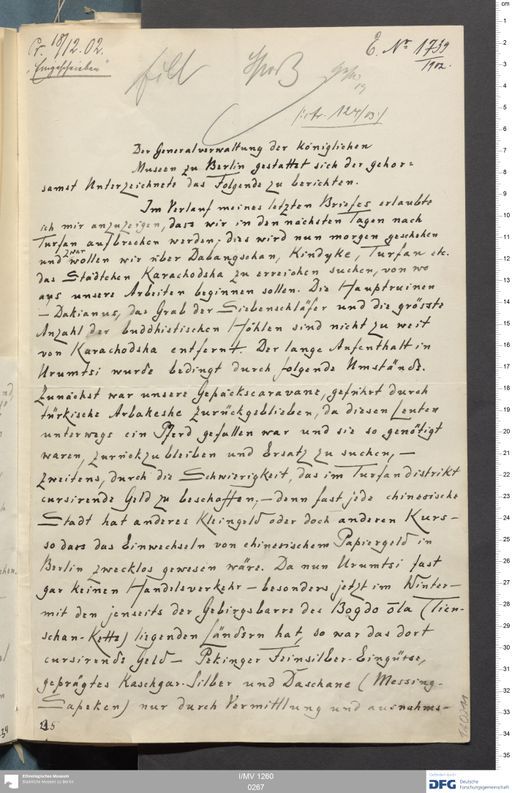 Pr. 18/12.02.
"Eingeschrieben"
E. No 1739
/1902.
(:cfr. 124/03:)
Der Generalverwaltung der königlichen
Museen zu Berlin gestattet sich der gehor=
samst Unterzeichnete das Folgende zu berichten.
Im Verlauf meines letzten Briefes erlaubte
ich mir anzuzeigen, dass wir in den nächsten Tagen nach
Turfan aufbrechen werden; dies wird nun morgen geschehen
und zwar wollen wir über Dabangschan, Kindyke, Turfan etc.
das Städtchen Karachodsha zu erreichen suchen, von wo
aus unsere Arbeiten beginnen sollen. Die Hauptruinen
– Dakianus, das Grab der Siebenschläfer und die grösste
Anzahl der buddhistischen Höhlen sind nicht zu weit
von Karachodsha entfernt. Der lange Aufenthalt in
Urumtsi wurde bedingt durch folgende Umstände.
Zunächst war unsere Gepäckscaravane, geführt durch
türkische Arbakeshe zurückgeblieben, da diesen Leuten
unterwegs ein Pferd gefallen war und sie so genötigt
waren, zurückzubleiben und Ersatz zu suchen, –
zweitens, durch die Schwierigkeit, das im Turfandistrikt
cursirende Geld zu beschaffen, – denn fast jede chinesische
Stadt hat anderes Kleingeld oder doch anderen Kurs –
so dass das Einwechseln von chinesischem Papiergeld in
Berlin zwecklos gewesen wäre. Da nun Urumtsi fast
gar keinen Handelsverkehr – besonders jetzt im Winter –
mit den jenseits der Gebirgsbarre des Bogdo ola (Tien-
schan-Kette) liegenden Ländern hat, so war das dort
cursirende Geld – Pekinger Feinsilber-Eingüsse,
geprägtes Kaschgar-Silber und Daschane (Messing-
Sapeken) nur durch Vermittlung und ausnahms-
Ethnologisches Museum
Staatliche Museen zu Berlin
I/MV 1260
0267
DFG Deutsche
Forschungsgemeinschaft